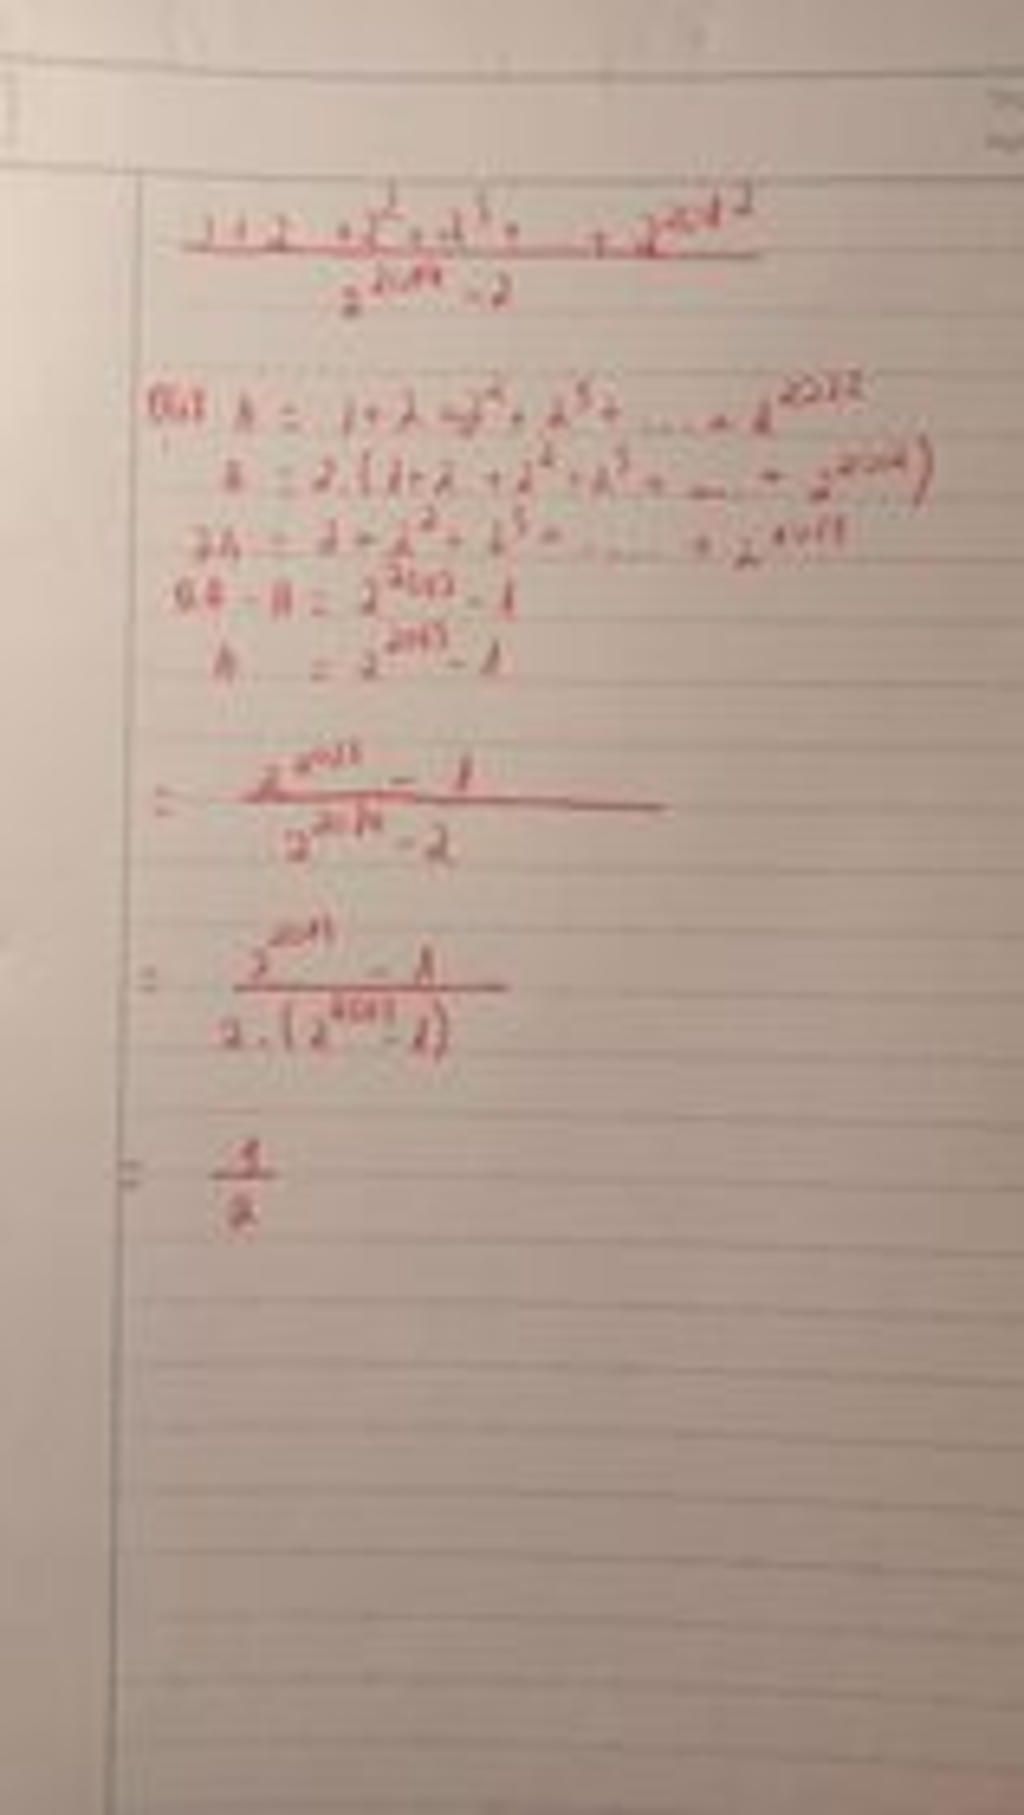 1 + 2 + 2² + 2³ + ... + 2²⁰¹²
2²⁰¹⁴ - 2
A = 1 + 2 + 2² + 2³ + .... + 2²⁰¹²
A = 2.(1 + 2 + 2² + 2³ + ... + 2²⁰¹²)
2A = 2 + 2² + 2³ + .... + 2²⁰¹³
2A - A = 2²⁰¹³ - 1
A = 2²⁰¹³ - 1
= 2²⁰¹³ - 1
2²⁰¹⁴ - 2
= 2²⁰¹³ - 1
2.(2²⁰¹³ - 1)
= 1
2